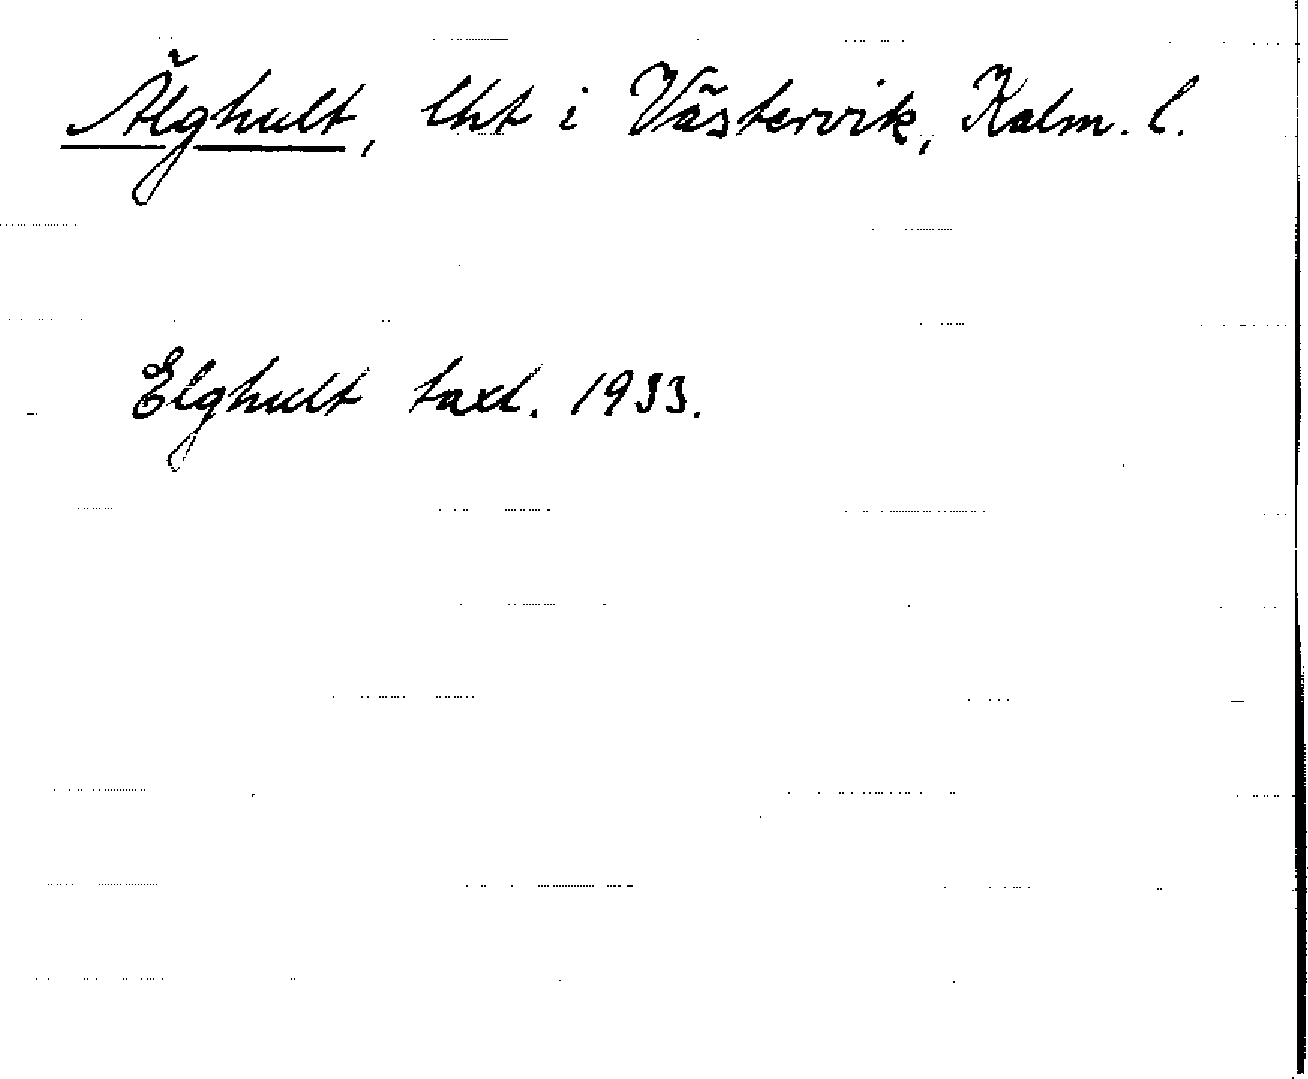 Älghult, lht i Västervik, Kalm. l.
Elghult taxl. 1933.